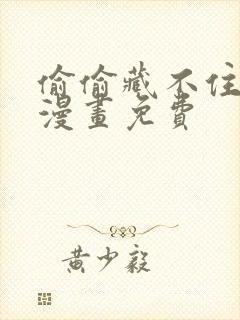 偷偷藏不住
漫畫免費
黄少毅